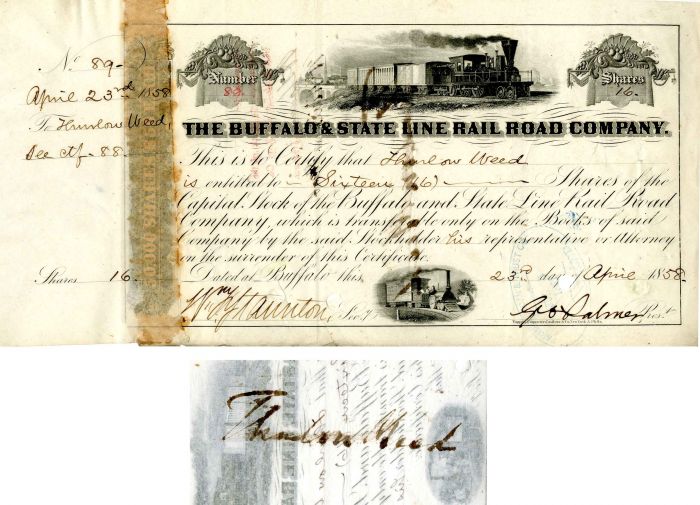 No. 89
April 23rd 1858
To Thurlow Weed,
See ctf. 88.
Shares 16.
Number
89.
Shares
16.
THE BUFFALO & STATE LINE RAIL ROAD COMPANY.
This is to Certify that Thurlow Weed
is entitled to Sixteen (16) Shares of the
Capital Stock of the Buffalo and State Line Rail Road
Company, which is transferable only on the Books of said
Company by the said Stockholder his representative or Attorney
on the surrender of this Certificate.
Dated at Buffalo this, 23rd day of April 1858.
Wm Staunton, Secy.
Geo Palmer Prest.
Thurlow Weed